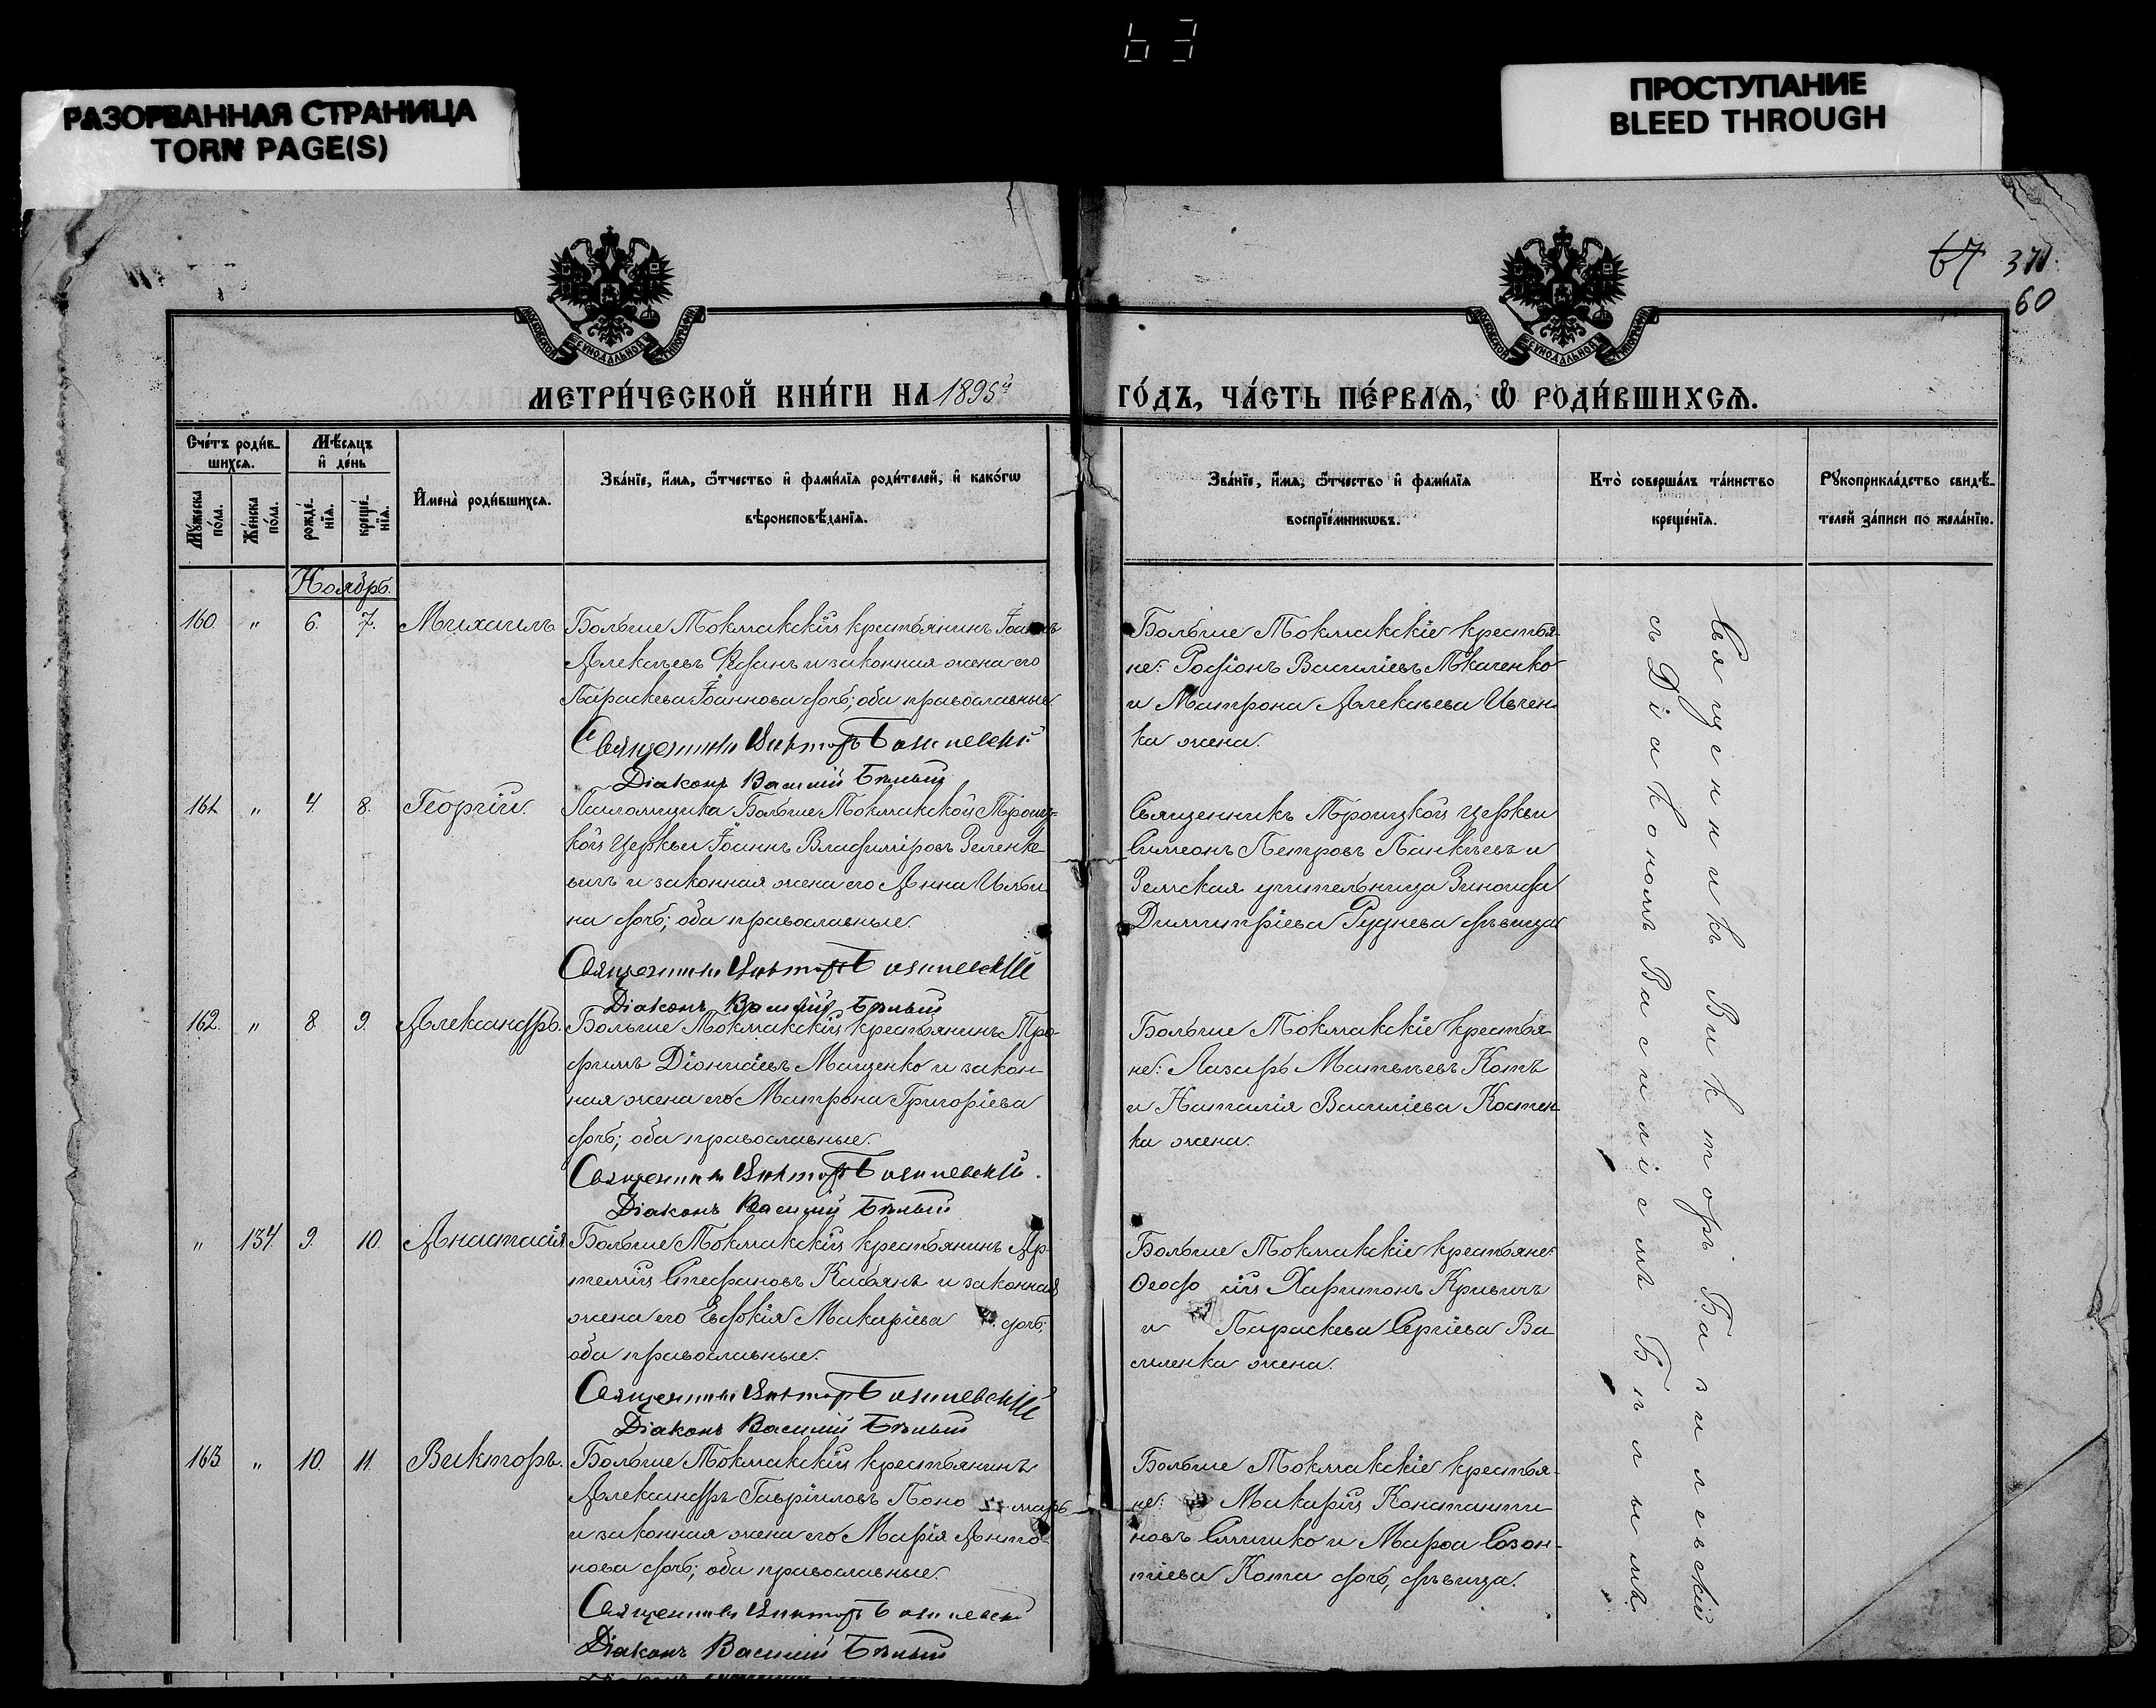 63
РАЗОРВАННАЯ СТРАНИЦА
TORN PAGE(S)
ПРОСТУПАНИЕ
BLEED THROUGH
67 371
60
МОСКОВСКОЙ СѴНОДАЛЬНОЙ ТИПОГРАФІИ
МОСКОВСКОЙ СѴНОДАЛЬНОЙ ТИПОГРАФІИ
МЕТРИ́ЧЕСКОЙ КНИ́ГИ НА 1895й
ГО́ДЪ, ЧА́СТЬ ПЕ́РВАѦ, Ѽ РОДИ́ВШИХСѦ.
Сче́тъ роди́в-
шихсѧ.
Мѣ́сяцъ
и҆ де́нь
Мꙋжеска
по́ла.
Же́нска
по́ла.
рожде́-
нїѧ.
креще́-
нїѧ.
И҆мена̀ роди́вшихсѧ.
Зва́нїе, и҆́мѧ, ѻ҆́тчество и҆ фами́лїѧ роди́телей, и҆ како́гѡ
вѣроисповѣ́данїѧ.
Зва́нїе, и҆́мѧ, ѻ҆́тчество и҆ фами́лїѧ
воспрїе́мникѡвъ.
Кто̀ соверша́лъ та́инство
креще́нїѧ.
Рꙋкоприкла́дство свидѣ́-
телей за́писи по жела́нїю.
Ноябрь.
160 " 6. 7. Михаилъ
Больше Токмакскій крестьянинъ Іоаннъ
Алексѣевъ и законная жена его
Параскева Іоаннова дочь; оба православные.
Священникъ Викторъ Базилевскій
Діаконъ Василій Бѣлый
Больше Токмакскіе крестья-
не: Родіонъ Василіевъ Ткаченко
и Матрона Алексѣева Ивчен-
ка жена.
161 " 4. 8. Георгій.
Псаломщика Больше Токмакской Троиц-
кой Церкви Іоаннъ Владиміровъ Зеленке-
вичъ и законная жена его Анна Ильи-
на дочь; оба православные.
Священникъ Викторъ Базилевскій
Діаконъ Василій Бѣлый
Священникъ Троицкой Церкви
Симеонъ Петровъ Панкѣевъ и
Земская учительница Зинаида
Димитріева Руднева дѣвица
162. " 8 9. Александръ.
Больше Токмакскій крестьянинъ Тро-
фимъ Діонисіевъ Мащенко и закон-
ная жена его Матрона Григоріева
дочь; оба православные.
Священникъ Викторъ Базилевскій.
Діаконъ Василій Бѣлый
Больше Токмакскіе крестья-
не: Лазарь Матвѣевъ Котъ
и Наталія Василіева Костен-
ка жена.
" 134. 9. 10. Анастасія
Больше Токмакскій крестьянинъ Ар-
темій Стефановъ Касьянъ и законная
жена его Евдокія Макаріева дочь;
оба православные.
Священникъ Викторъ Базилевскій
Діаконъ Василій Бѣлый
Больше Токмакскіе крестьяне:
Ѳеодо ій Харитонъ Кривичъ
и Параскева Сергіева Ва-
силенка жена.
163 " 10. 11. Викторъ.
Больше Токмакскій крестьянинъ
Александръ Гавріиловъ Поно марь
и законная жена его Марія Анто-
нова дочь; оба православные.
Священникъ Викторъ Базилевскій
Діаконъ Василій Бѣлый
Больше Токмакскіе крестья-
не: Макарій Константи-
новъ и Марѳа Созон-
тіева Кота дочь, дѣвица.
Священникъ Викторъ Базилевскій
съ Діакономъ Василіемъ Бѣлымъ